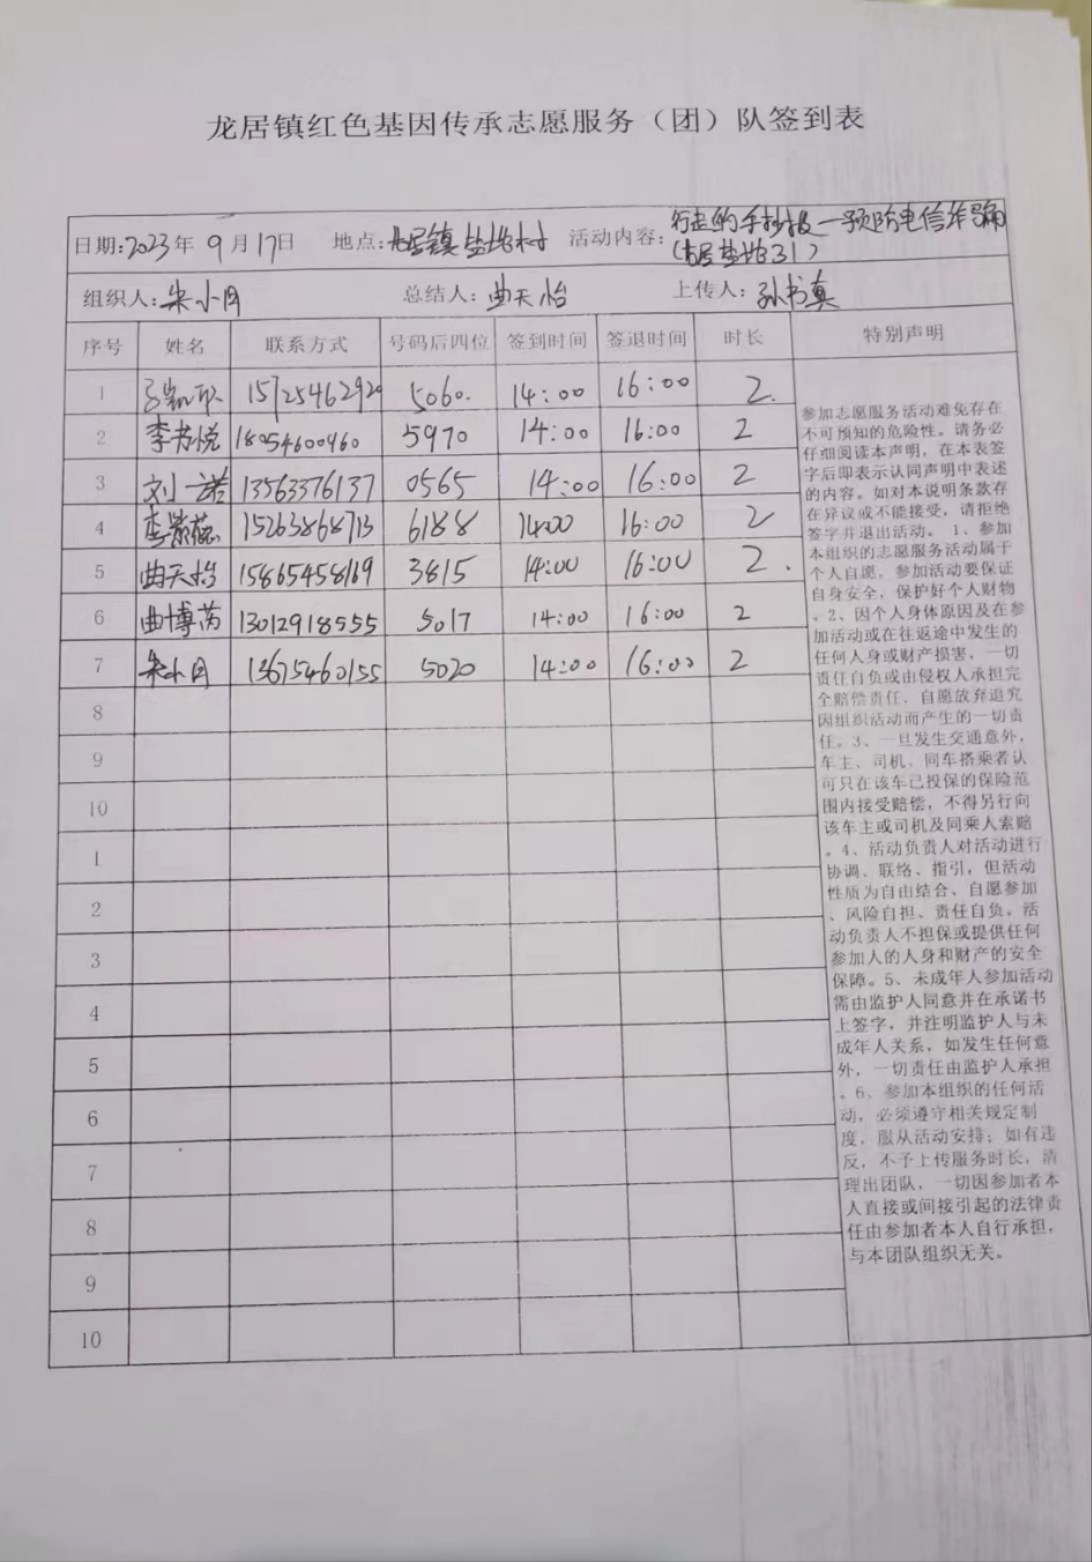 龙居镇红色基因传承志愿服务（团）队签到表
日期:2023年9月17日 地点:龙居镇盐地村 活动内容:行走的手抄报—预防电信诈骗
(龙居盐地31)
组织人:朱小月 总结人:曲天怡 上传人:孙书真
序号 姓名 联系方式 号码后四位 签到时间 签退时间 时长 特别声明
1 15725462920 5060. 14:00 16:00 2.
2 李书悦 18054600460 5970 14:00 16:00 2
3 刘一诺 13563376137 0565 14:00 16:00 2
4 李紫蕊 15263868713 6188 14:00 16:00 2
5 曲天怡 15865458169 3815 14:00 16:00 2.
6 曲博芮 13012918555 5017 14:00 16:00 2
7 朱小月 13675460155 5020 14:00 16:00 2
8
9
10
1
2
3
4
5
6
7
8
9
10
参加志愿服务活动难免存在
不可预知的危险性。请务必
仔细阅读本声明，在本表签
字后即表示认同声明中表述
的内容。如对本说明条款存
在异议或不能接受，请拒绝
签字并退出活动。1、参加
本组织的志愿服务活动属于
个人自愿。参加活动要保证
自身安全，保护好个人财物
。2、因个人身体原因及在参
加活动或在往返途中发生的
任何人身或财产损害，一切
责任自负或由侵权人承担完
全赔偿责任，自愿放弃追究
因组织活动而产生的一切责
任。3、一旦发生交通意外，
车主、司机、同车搭乘者认
可只在该车已投保的保险范
围内接受赔偿，不得另行向
该车主或司机及同乘人索赔
。4、活动负责人对活动进行
协调、联络、指引，但活动
性质为自由结合、自愿参加
、风险自担、责任自负，活
动负责人不担保或提供任何
参加人的人身和财产的安全
保障。5、未成年人参加活动
需由监护人同意并在承诺书
上签字，并注明监护人与未
成年人关系，如发生任何意
外，一切责任由监护人承担
。6、参加本组织的任何活
动，必须遵守相关规定制
度，服从活动安排；如有违
反，不予上传服务时长，清
理出团队，一切因参加者本
人直接或间接引起的法律责
任由参加者本人自行承担，
与本团队组织无关。